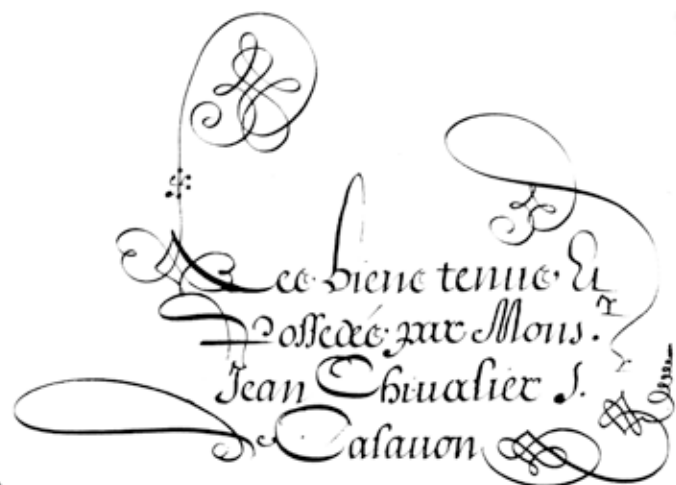 Les biens tenus Et
Possedés par Mons.r
Jean Chivalier S.
de Calavon